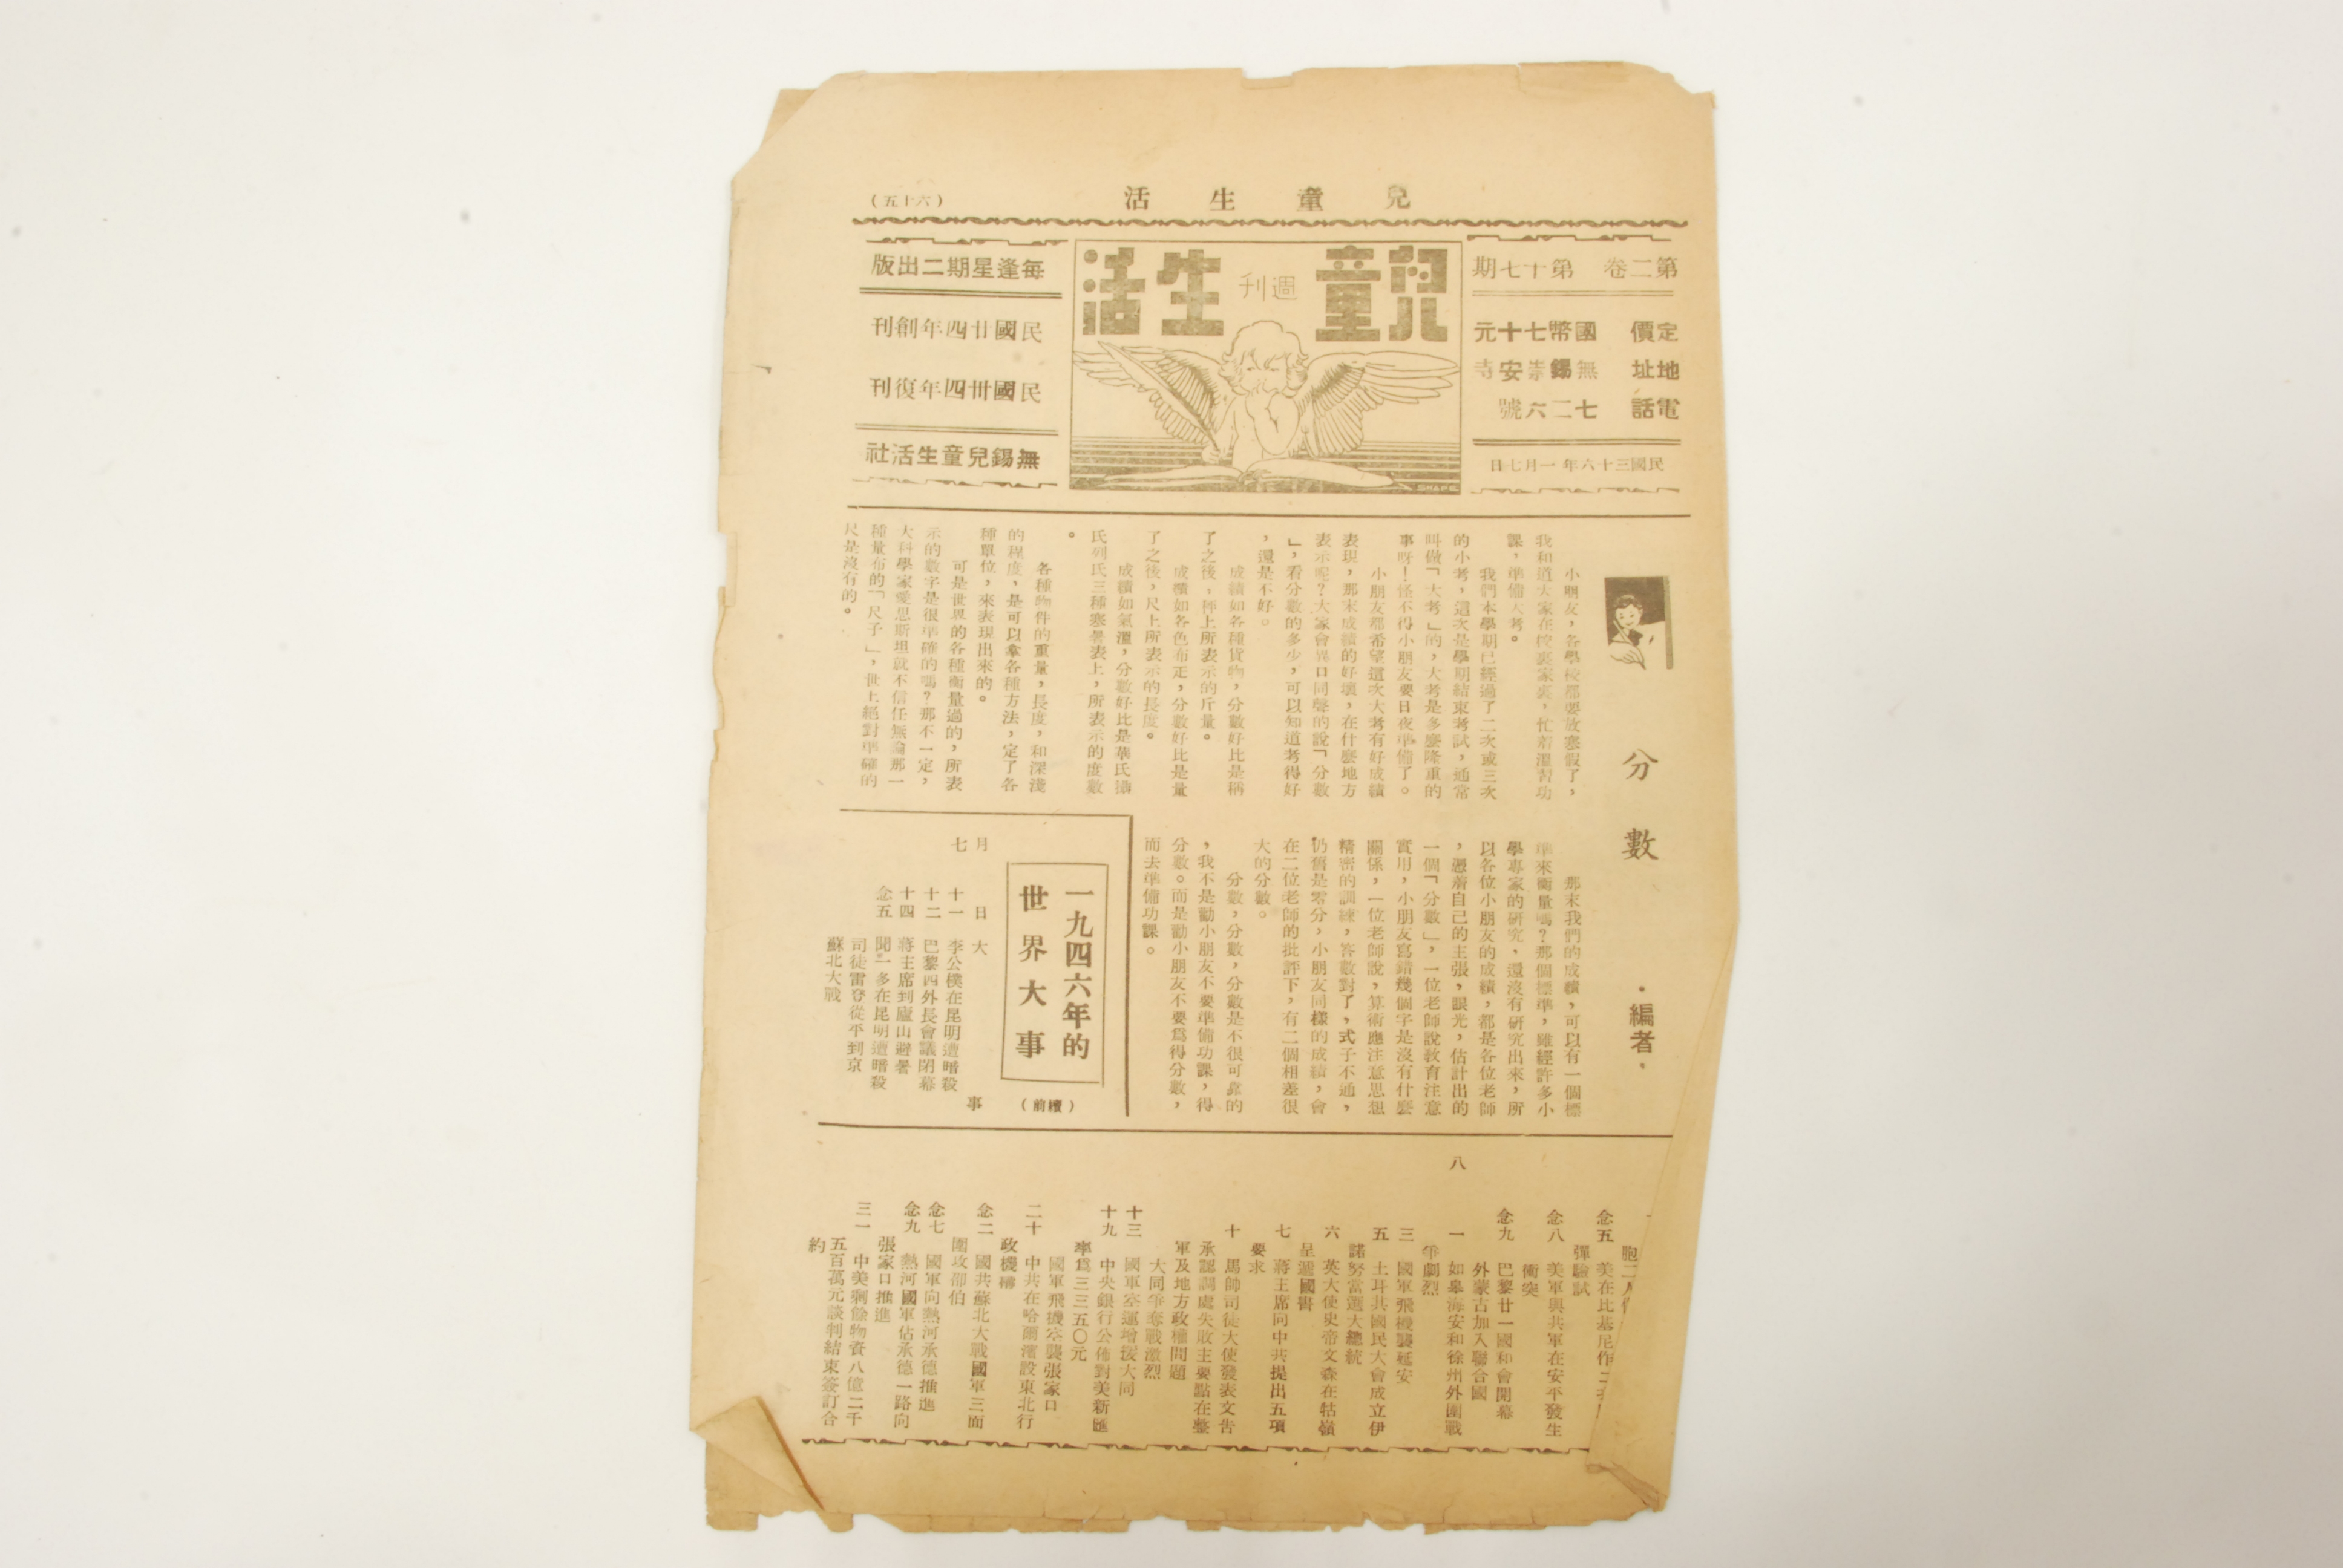 兒童生活
(六十五)
第二卷 第十七期
定價 國幣七十元
地址 無錫崇安寺
電話 七二六號
民國三十六年一月七日
兒童生活
週刊
SHAPE
每逢星期二出版
民國廿四年創刊
民國卅四年復刊
無錫兒童生活社
分數
·編者·
小朋友,各學校都要放寒假了,
我和道大家在校裏家裏,忙着溫習功
課,準備大考。
我們本學期已經過了二次或三次
的小考,這次是學期結束考試,通常
叫做「大考」的,大考是多麼隆重的
事呀!怪不得小朋友要日夜準備了。
小朋友都希望這次大考有好成績
表現,那末成績的好壞,在什麼地方
表示呢?大家會異口同聲的說「分數
」,看分數的多少,可以知道考得好
,還是不好。
成績如各種貨物,分數好比是稱
了之後,秤上所表示的斤量。
成績如各色布疋,分數好比是量
了之後,尺上所表示的長度。
成績如氣溫,分數好比是華氏攝
氏列氏三種寒暑表上,所表示的度數
。
各種物件的重量,長度,和深淺
的程度,是可以拿各種方法,定了各
種單位,來表現出來的。
可是世界的各種衡量過的,所表
示的數字是很準確的嗎?那不一定,
大科學家愛思斯坦就不信任無論那一
種量布的「尺子」,世上絕對準確的
尺是沒有的。
那末我們的成績,可以有一個標
準來衡量嗎?那個標準,雖經許多小
學專家的研究,還沒有研究出來,所
以各位小朋友的成績,都是各位老師
,憑着自己的主張,眼光,估計出的
一個「分數」,一位老師說教育注意
實用,小朋友寫錯幾個字是沒有什麼
關係,一位老師說,算術應注意思想
精密的訓練,答數對了,式子不通,
仍舊是零分,小朋友同樣的成績,會
在二位老師的批評下,有二個相差很
大的分數。
分數,分數,分數是不很可靠的
,我不是勸小朋友不要準備功課,得
分數。而是勸小朋友不要爲得分數,
而去準備功課。
一九四六年的
世界大事
(續前)
月 日 大 事
七
十一 李公樸在昆明遭暗殺
十二 巴黎四外長會議閉幕
十四 蔣主席到廬山避暑
念五 聞一多在昆明遭暗殺
司徒雷登從平到京
蘇北大戰
胞二人
念五 美在比基尼作二
彈驗試
念八 美軍與共軍在安平發生
衝突
念九 巴黎廿一國和會開幕
外蒙古加入聯合國
八
一 如皋海安和徐州外圍戰
爭劇烈
三 國軍飛機襲延安
五 土耳其國民大會成立伊
諾努當選大總統
六 英大使史帝文森在牯嶺
呈遞國書
七 蔣主席向中共提出五項
要求
十 馬帥司徒大使發表文告
承認調處失敗主要點在整
軍及地方政權問題
大同爭奪戰激烈
十三 國軍空運增援大同
十九 中央銀行公佈對美新匯
率爲三三五〇元
國軍飛機空襲張家口
二十 中共在哈爾濱設東北行
政機構
念二 國共蘇北大戰國軍三面
圍攻卲伯
念七 國軍向熱河承德推進
念九 熱河國軍佔承德一路向
張家口推進
三一 中美剩餘物資八億二千
五百萬元談判結束簽訂合
約